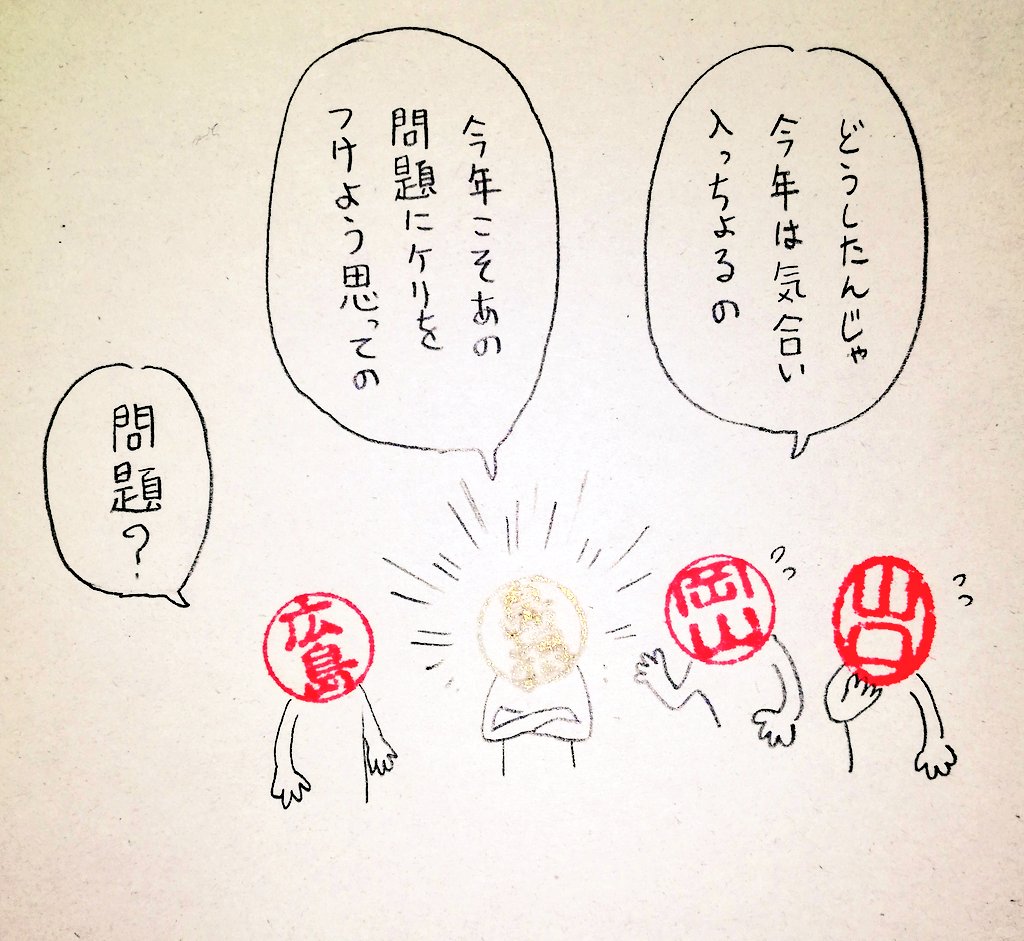 どうしたんじゃ
今年は気合い
入っちょるの
今年こそあの
問題にケリを
つけよう思っての
問題?
山口
岡山
広島